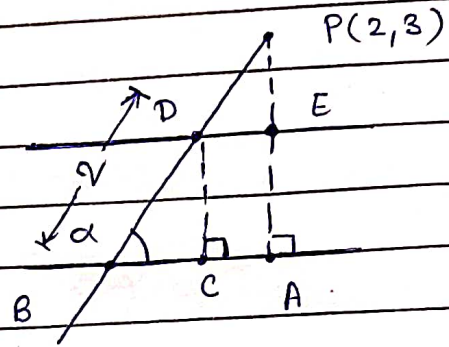 P(2,3)
D E
α
B C A